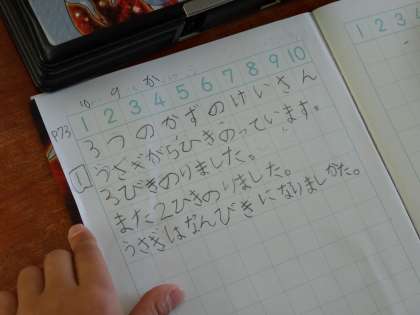 10 9 か
1 2 3 4 5 6 7 8 9 10
P73 3つのかずのけいさん
1 うさぎが5ひきのっています。
3びきのりました。
また2ひきのりました。
うさぎはなんびきになりましかた。
1 2 3 4